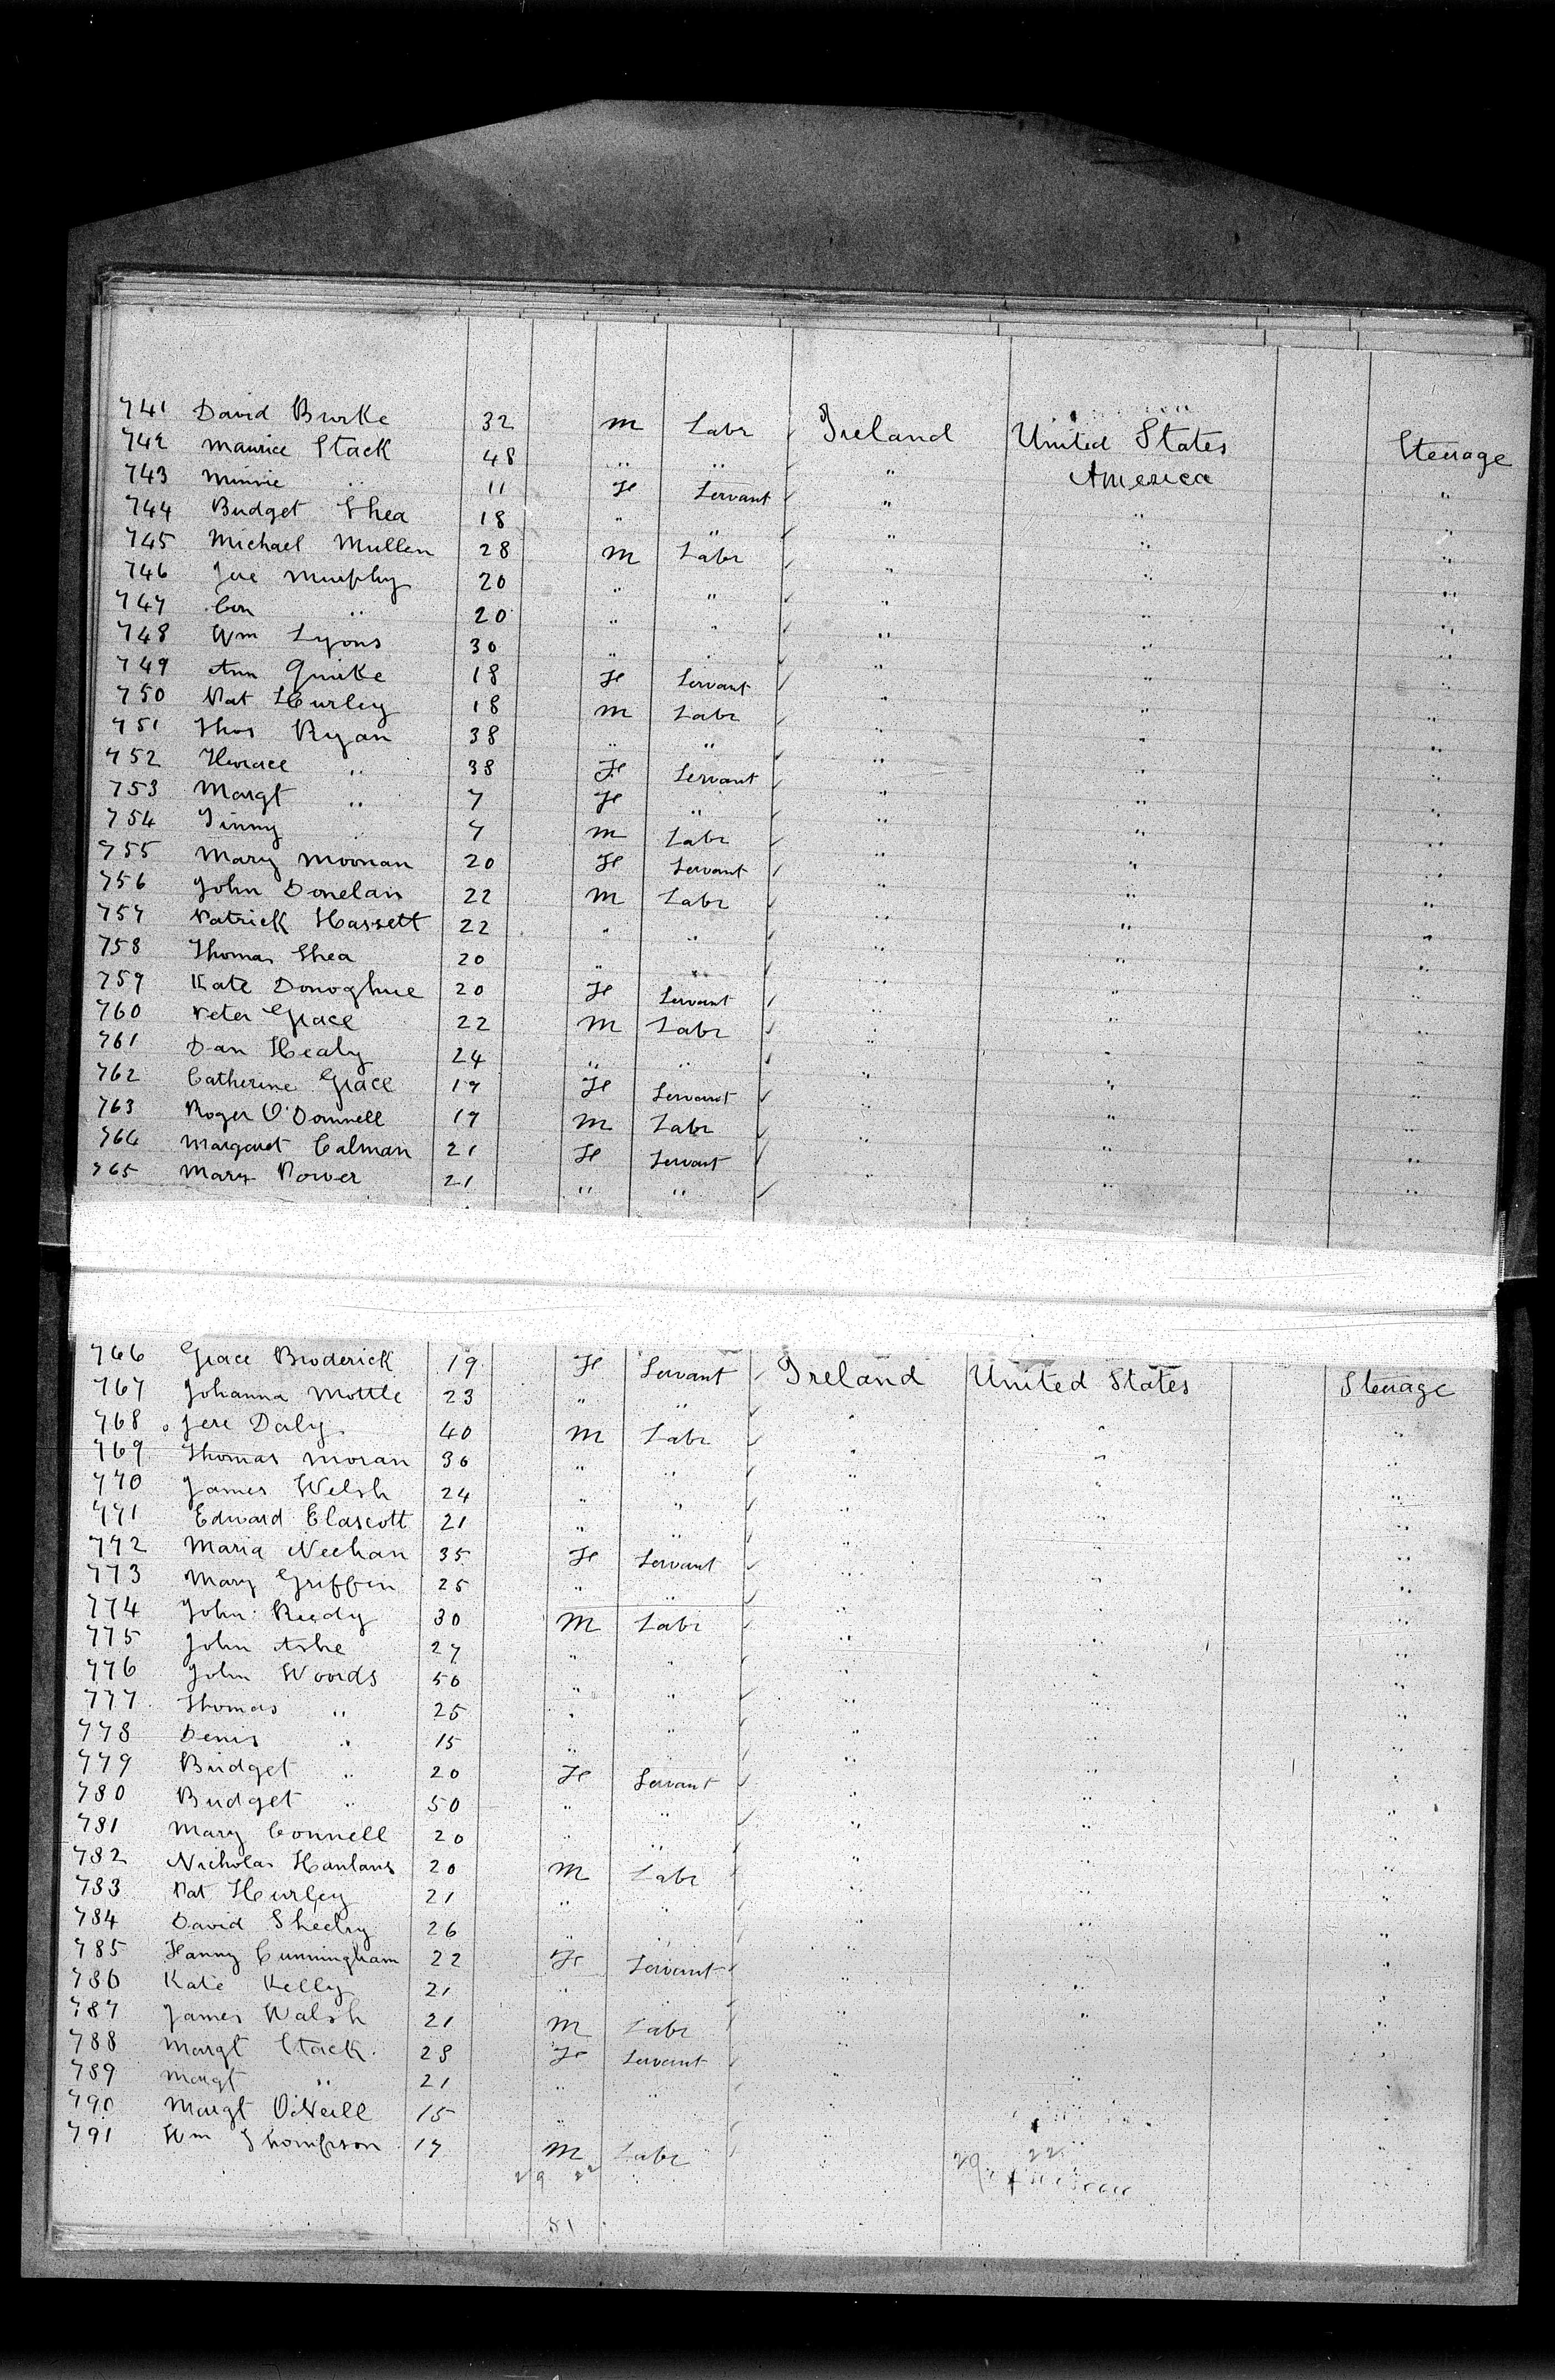 741 David Burke 32 m Labr Ireland United States Steerage
742 Maurice Stack 48 " " " America "
743 Minnie " 11 Fe Servant " " "
744 Bridget Shea 18 " " " " "
745 Michael Mullen 28 m Labr " " "
746 Jere Murphy 20 " " " " "
747 Con " 20 " " " " "
748 Wm Lyons 30 " " " " "
749 Ann Quirke 18 Fe Servant " " "
750 Pat Hurley 18 m Labr " " "
751 Thos Ryan 38 " " " " "
752 " 38 Fe Servant " " "
753 Margt " 7 Fe " " " "
754 " 7 m Labr " " "
755 Mary Moonan 20 Fe Servant " " "
756 John Donelan 22 m Labr " " "
757 Patrick Hassett 22 " " " " "
758 Thomas Shea 20 " " " " "
759 Kate Donoghue 20 Fe Servant " " "
760 Peter Grace 22 m Labr " " "
761 Dan Healy 24 " " " " "
762 Catherine Grace 17 Fe Servant " " "
763 Roger O'Donnell 19 m Labr " " "
764 Margaret Calman 21 Fe Servant " " "
765 Mary Power 21 " " " " "
766 Grace Broderick 19 Fe Servant Ireland United States Steerage
767 Johanna Mottle 23 " " " " "
768 Jere Daly 40 m Labr " " "
769 Thomas Moran 36 " " " " "
770 James Welsh 24 " " " " "
771 Edward Elascott 21 " " " " "
772 Maria Neehan 35 Fe Servant " " "
773 Mary Griffin 25 " " " " "
774 John Reedy 30 M Labr " " "
775 John Ashe 27 " " " " "
776 John Woods 50 " " " " "
777 Thomas " 25 " " " " "
778 Denis " 15 " " " " "
779 Bridget " 20 Fe Servant " " "
780 Bridget " 50 " " " " "
781 Mary Connell 20 " " " " "
782 Nicholas Hanlans 20 m Labr " " "
783 Pat Hurley 21 " " " " "
784 David Sheehy 26 " " " " "
785 Hanny Cunningham 22 Fe Servant " " "
786 Kate Kelly 21 " " " " "
787 James Walsh 21 m Labr " " "
788 Margt Stack 28 Fe Servant " " "
789 Margt " 21 " " " " "
790 Margt O'Neill 15 " " " " "
791 Wm Thompson 17 m Labr " " "
29 22 29 22
51